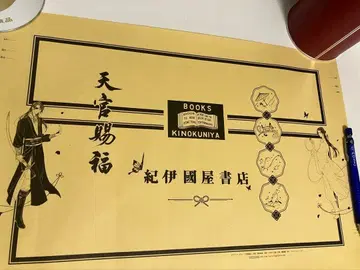 天官賜福
BOOKS
KINOKUNIYA
紀伊國屋書店